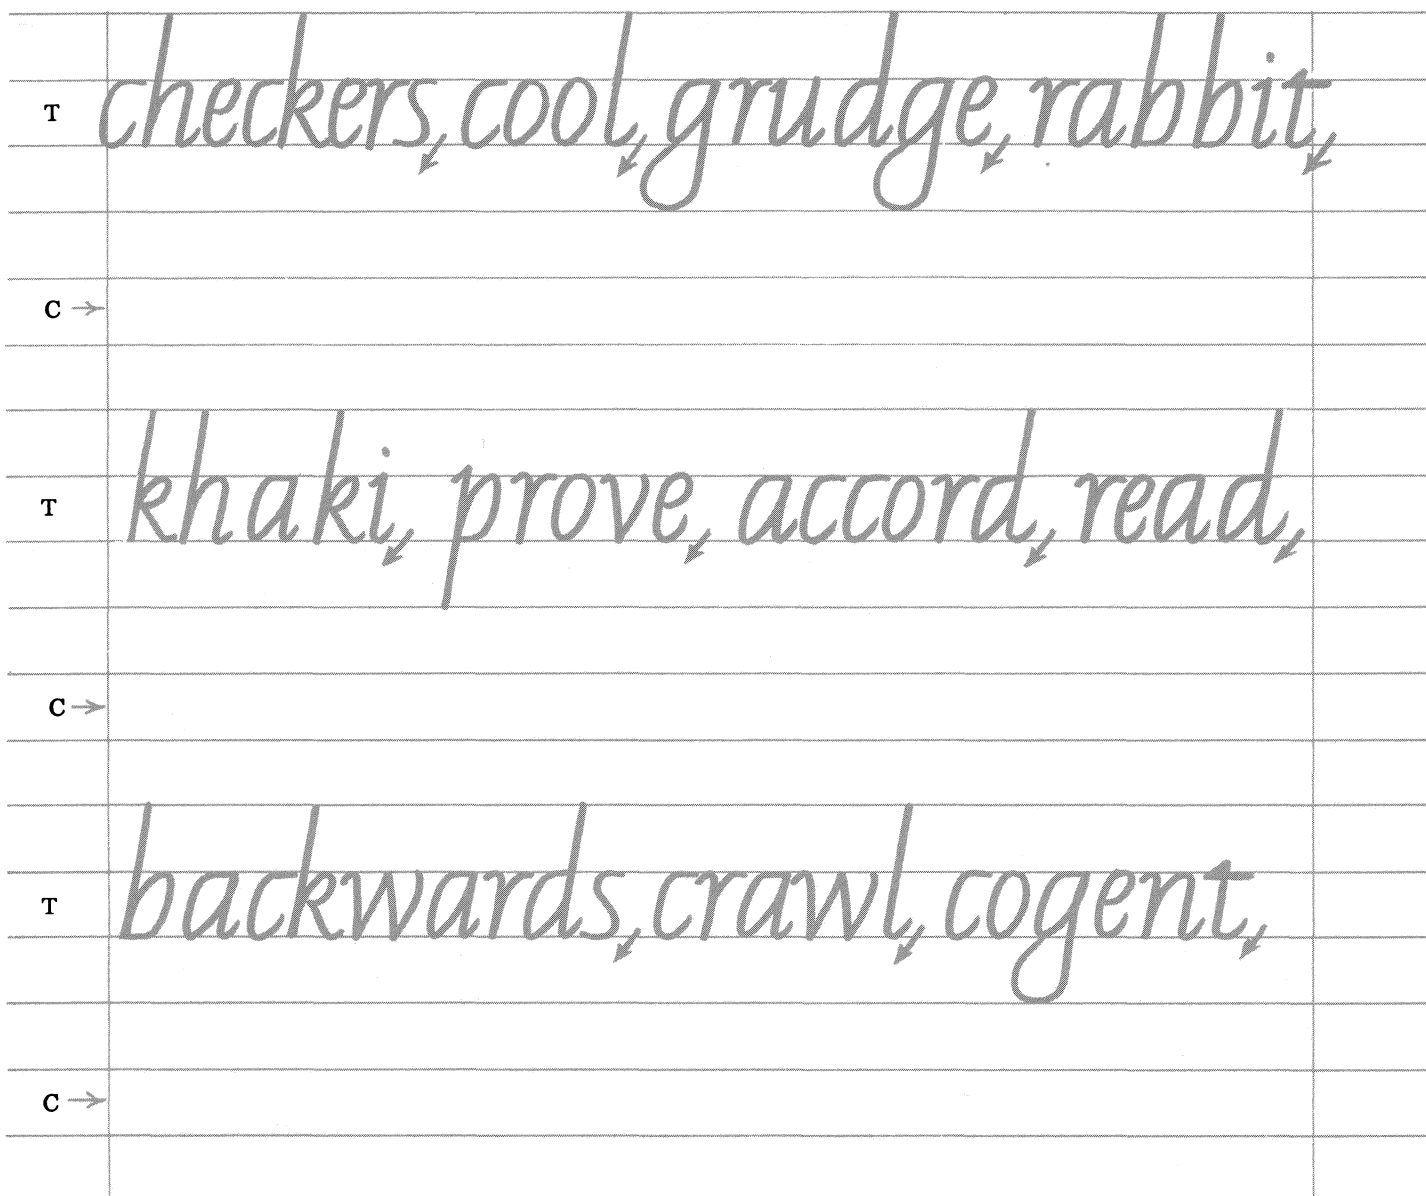 T checkers, cool, grudge, rabbit,
C
T khaki, prove, accord, read,
C
T backwards, crawl, cogent,
C